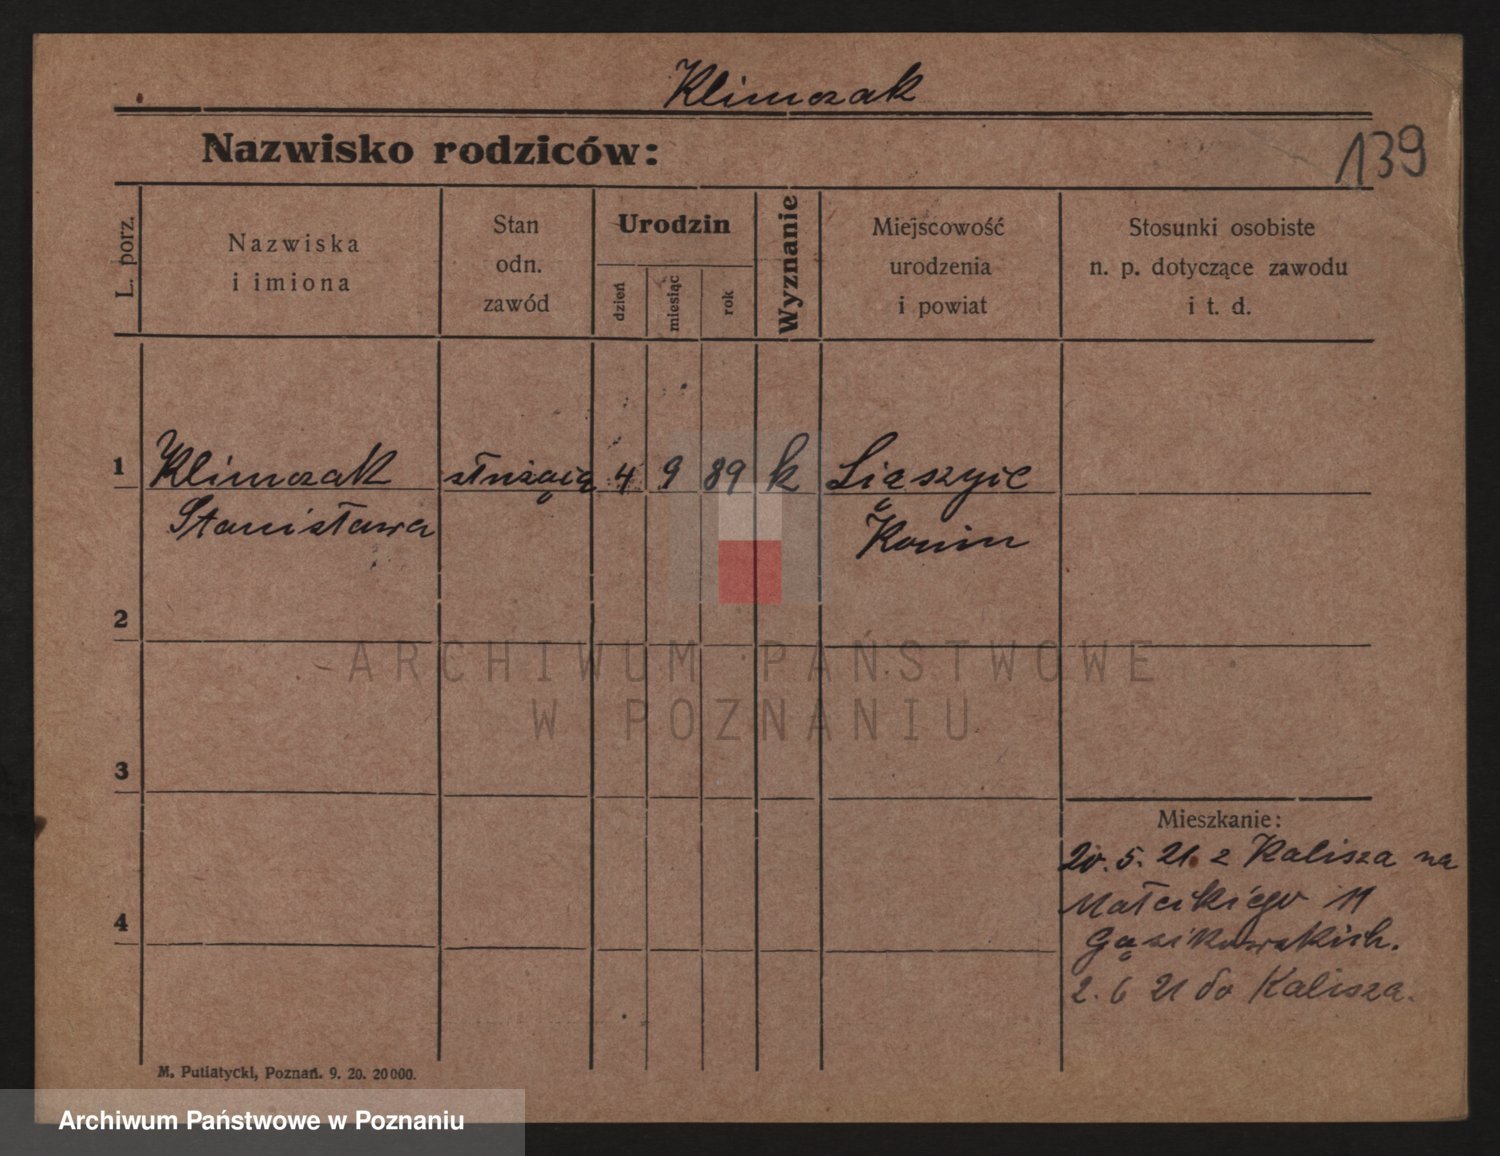 Klimczak
Nazwisko rodziców:
139
L. porz.
Nazwiska
i imiona
Stan
odn.
zawód
Urodzin
dzień
miesiąc
rok
Wyznanie
Miejscowość
urodzenia
i powiat
Stosunki osobiste
n. p. dotyczące zawodu
i t. d.
1
Klimczak służąca 4 9 89 k
Stanisława Konin
2
ARCHIWUM PAŃSTWOWE
W POZNANIU
3
Mieszkanie:
20. 5. 21. z Kalisza na
Małeckiego 11
4
2. 6 21 do Kalisza.
M. Putiatycki, Poznań. 9. 20. 20000.
Archiwum Państwowe w Poznaniu